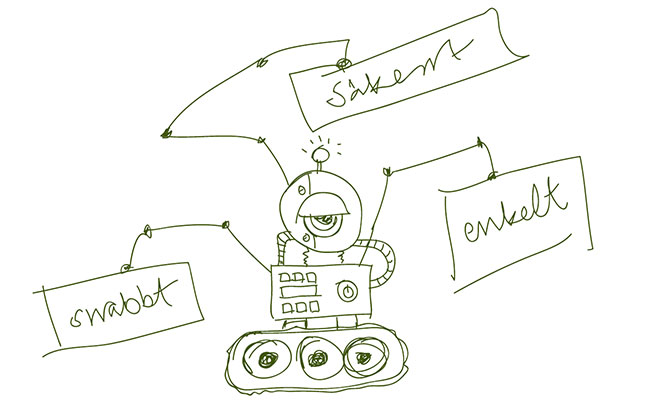 säkert
enkelt
snabbt